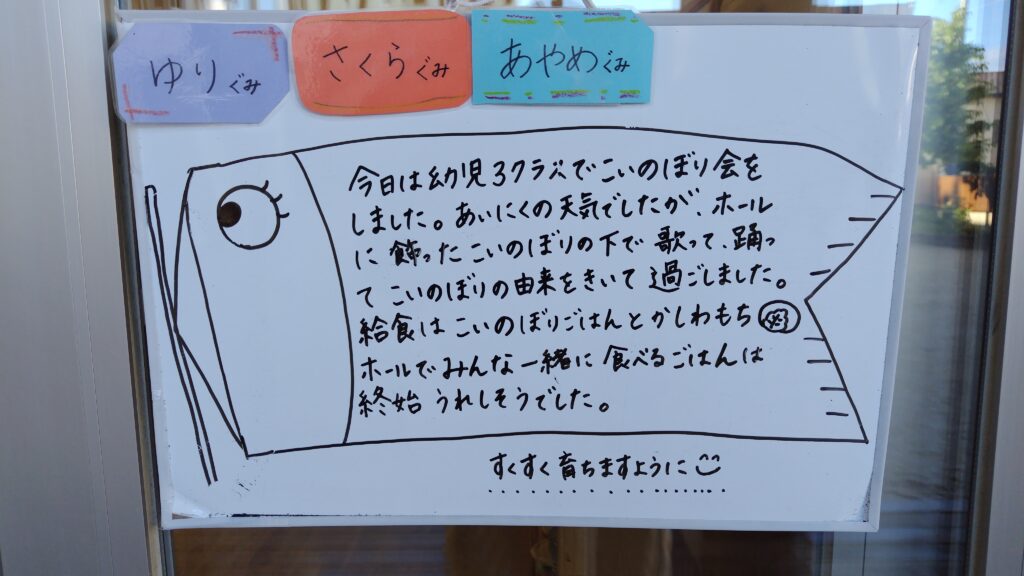 ゆりぐみ
さくらぐみ
あやめぐみ
今日は幼児3クラスでこいのぼり会を
しました。あいにくの天気でしたが、ホール
に飾ったこいのぼりの下で歌って、踊っ
てこいのぼりの由来をきいて過ごしました。
給食はこいのぼりごはんとかしわもち
ホールでみんな一緒に食べるごはんは
終始うれしそうでした。
すくすく育ちますように